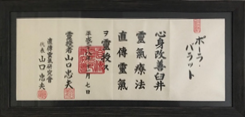 ポーラ・バラット
心身改善臼井
靈氣療法
直傳靈氣
ヲ靈授ス
平成 年 月七日
靈授者 山口忠夫
直傳靈氣研究會
代表 山口忠夫